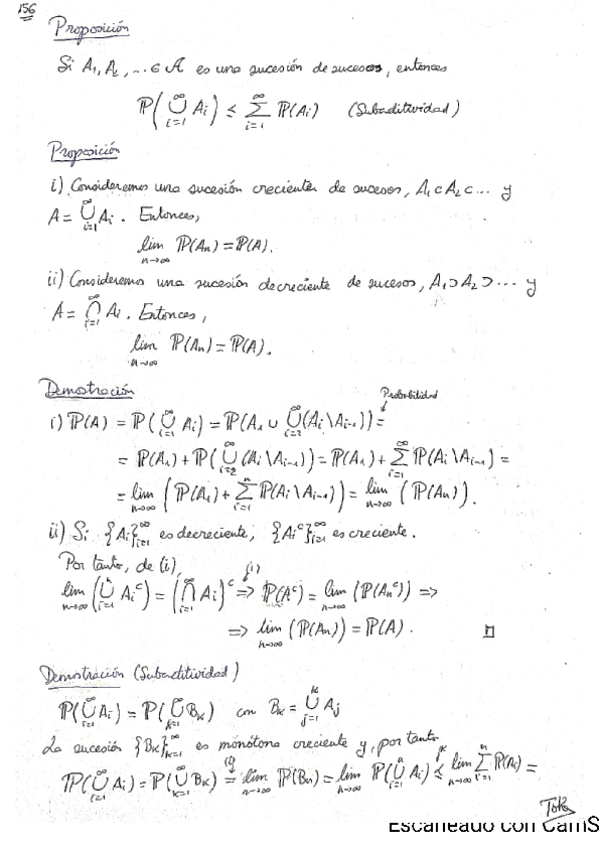 156
Proposición
Si A₁, A₂, ... ∈ 𝒜 es una sucesión de sucesos, entonces
ℙ(⋃_{i=1}^∞ Aᵢ) ≤ ∑_{i=1}^∞ ℙ(Aᵢ) (Subaditividad)
Proposición
i) Consideremos una sucesión creciente de sucesos, A₁ ⊂ A₂ ⊂ ... y
A = ⋃_{i=1}^∞ Aᵢ. Entonces,
lim_{n→∞} ℙ(Aₙ) = ℙ(A).
ii) Consideremos una sucesión decreciente de sucesos, A₁ ⊃ A₂ ⊃ ... y
A = ⋂_{i=1}^∞ Aᵢ. Entonces,
lim_{n→∞} ℙ(Aₙ) = ℙ(A).
Demostración
Probabilidad
i) ℙ(A) = ℙ(⋃_{i=1}^∞ Aᵢ) = ℙ(A₁ ∪ ⋃_{i=2}^∞ (Aᵢ \ Aᵢ₋₁)) =
= ℙ(A₁) + ℙ(⋃_{i=2}^∞ (Aᵢ \ Aᵢ₋₁)) = ℙ(A₁) + ∑_{i=1}^∞ ℙ(Aᵢ \ Aᵢ₋₁) =
= lim_{n→∞} (ℙ(A₁) + ∑_{i=1}^n ℙ(Aᵢ \ Aᵢ₋₁)) = lim_{n→∞} (ℙ(Aₙ)).
ii) Si {Aᵢ}_{i=1}^∞ es decreciente, {Aᵢᶜ}_{i=1}^∞ es creciente.
Por tanto, de (i),
lim_{n→∞} (⋃_{i=1}^n Aᵢᶜ) = (⋂_{i=1}^∞ Aᵢ)ᶜ ⇒^{(i)} ℙ(Aᶜ) = lim_{n→∞} (ℙ(Aₙᶜ)) ⇒
⇒ lim_{n→∞} (ℙ(Aₙ)) = ℙ(A). □
Demostración (Subaditividad)
ℙ(⋃_{i=1}^∞ Aᵢ) = ℙ(⋃_{k=1}^∞ Bₖ) con Bₖ = ⋃_{j=1}^k Aⱼ
La sucesión {Bₖ}_{k=1}^∞ es monótona creciente y, por tanto
ℙ(⋃_{i=1}^∞ Aᵢ) = ℙ(⋃_{k=1}^∞ Bₖ) =^{(i)} lim_{n→∞} ℙ(Bₙ) = lim_{n→∞} ℙ(⋃_{i=1}^n Aᵢ) ≤ lim_{n→∞} ∑_{i=1}^n ℙ(Aᵢ) =
Escaneado con CamS